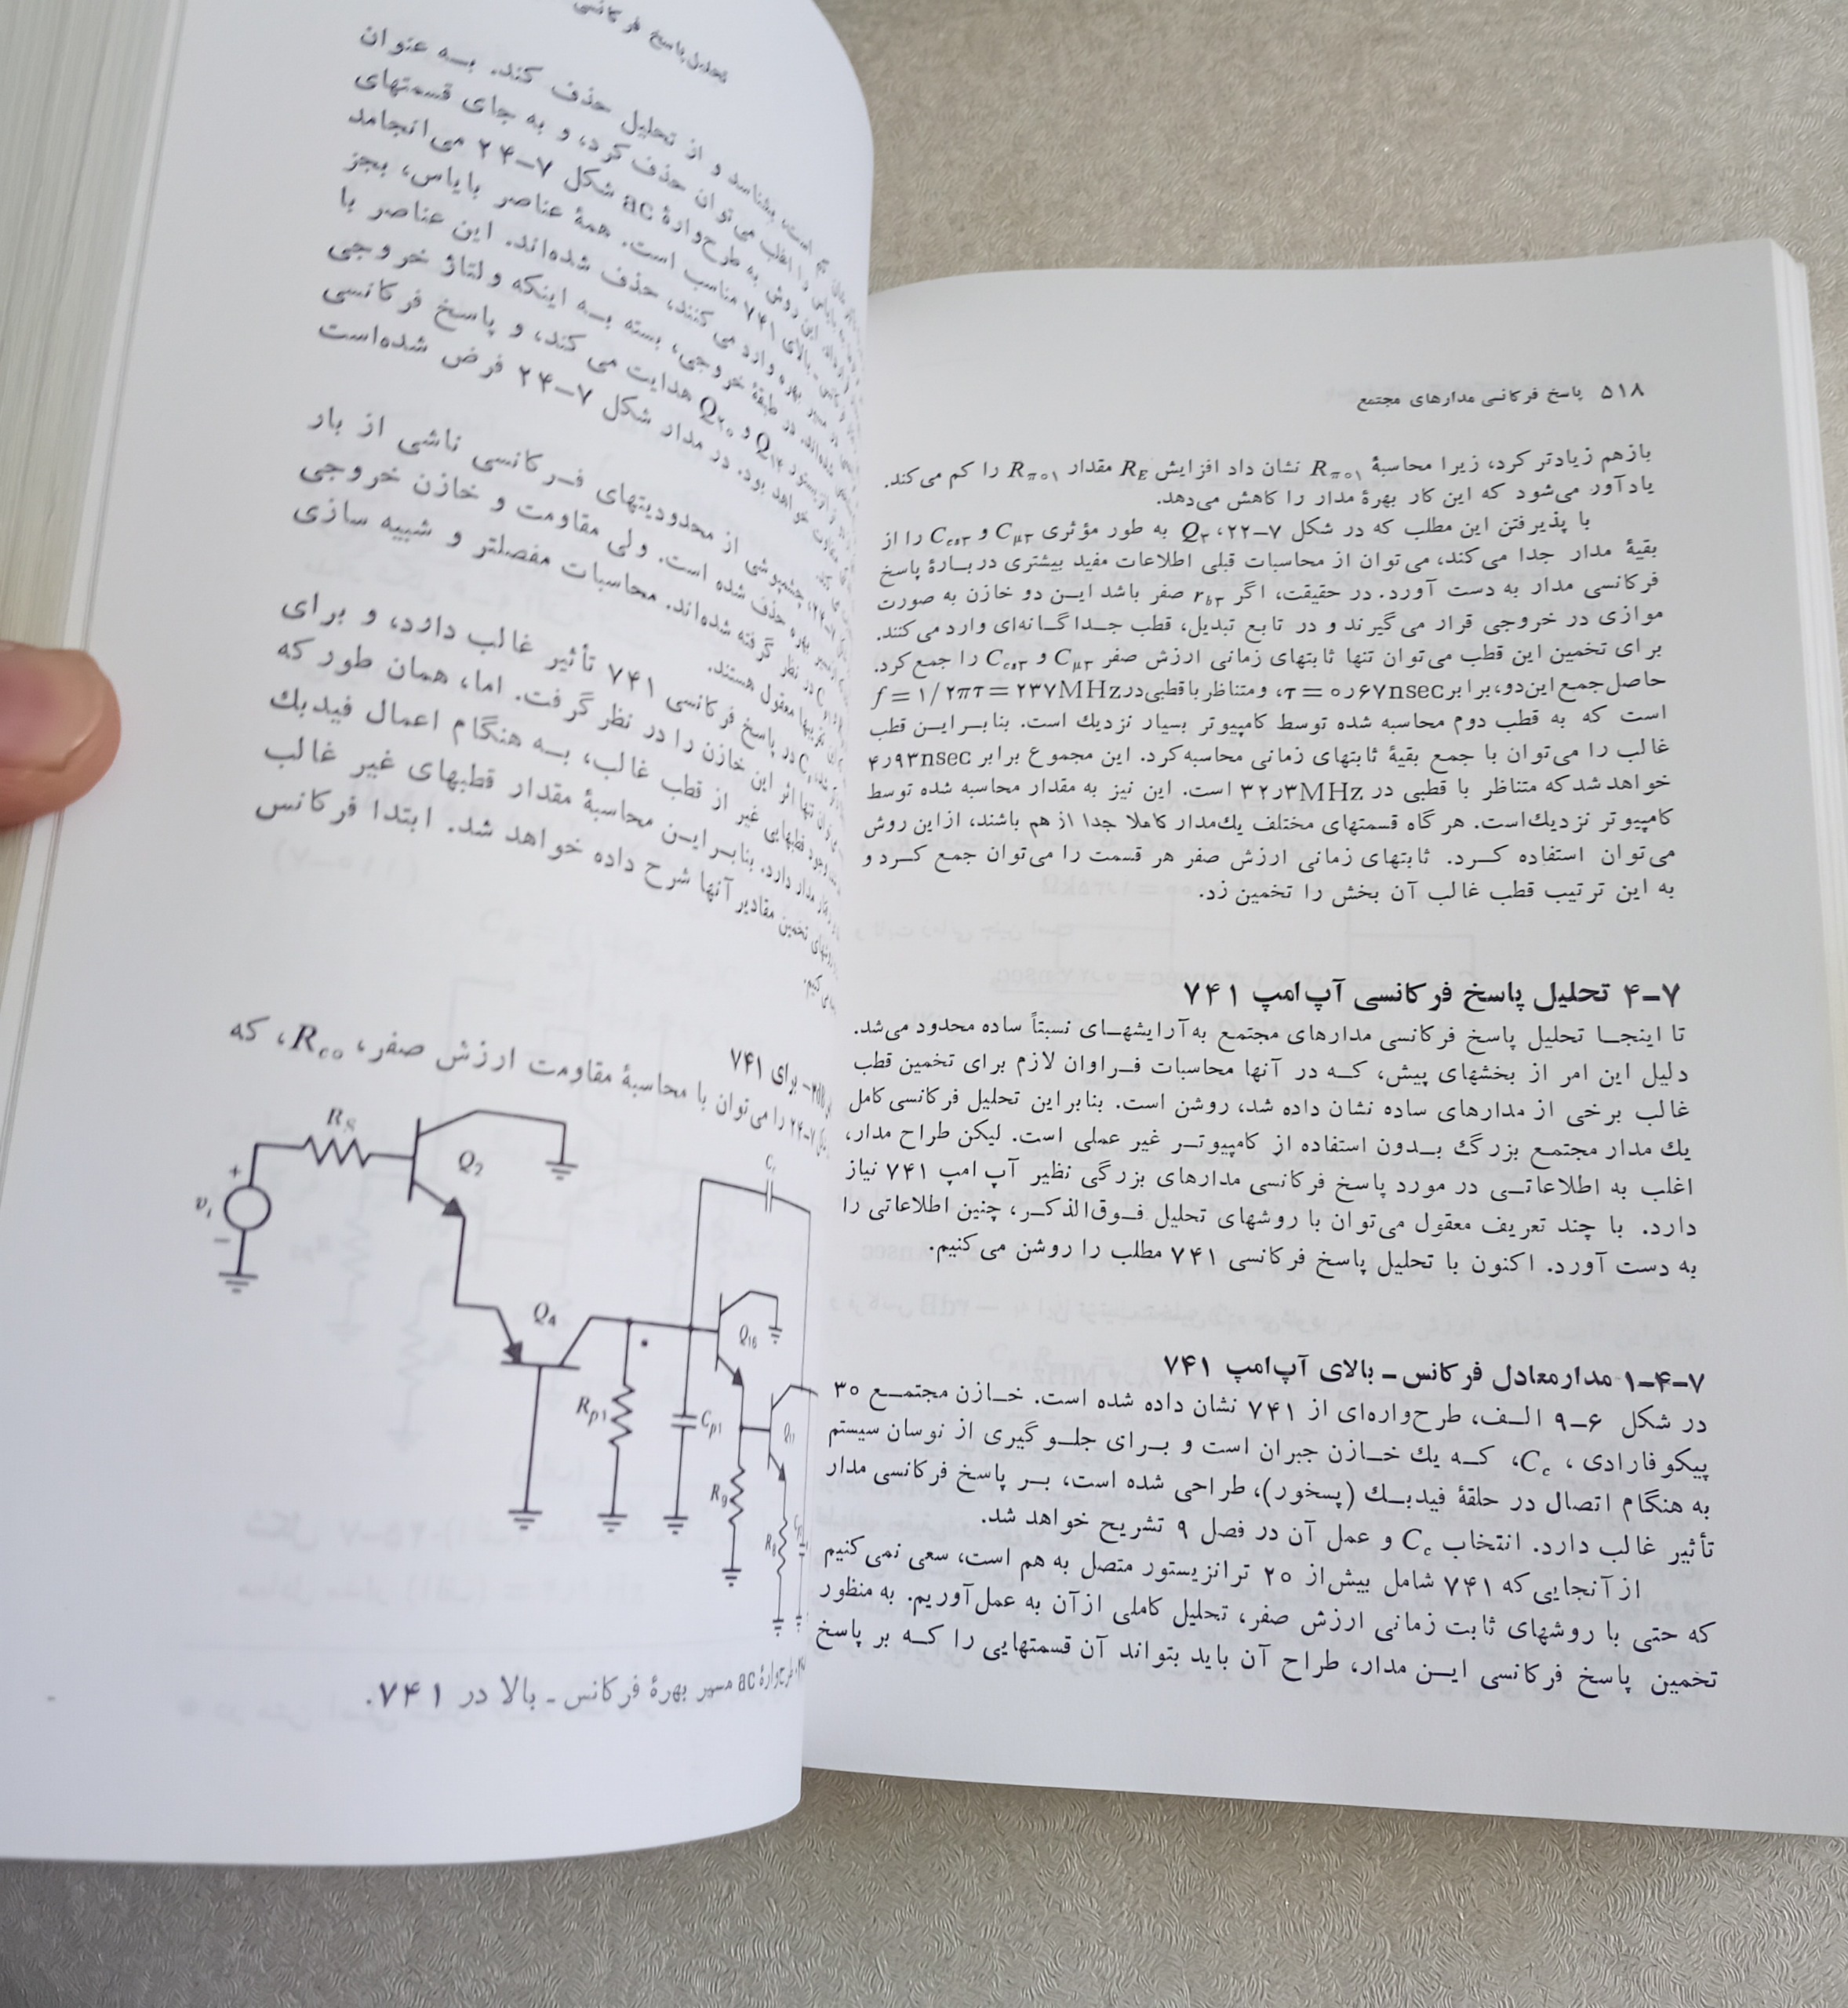 ۵۱۸ پاسخ فرکانسی مدارهای مجتمع
بازهم زیادتر کرد، زیرا محاسبهٔ Rπ۰۱ نشان داد افزایش RE مقدار Rπ۰۱ را کم می‌کند.
یادآور می‌شود که این کار بهرهٔ مدار را کاهش می‌دهد.
با پذیرفتن این مطلب که در شکل ۷–۲۲، Q۳ به طور مؤثری Cμ۳ و Ccs۳ را از
بقیهٔ مدار جدا می‌کند، می‌توان از محاسبات قبلی اطلاعات مفید بیشتری دربارهٔ پاسخ
فرکانسی مدار به دست آورد. در حقیقت، اگر rb۳ صفر باشد این دو خازن به صورت
موازی در خروجی قرار می‌گیرند و در تابع تبدیل، قطب جداگانه‌ای وارد می‌کنند.
برای تخمین این قطب می‌توان تنها ثابتهای زمانی ارزش صفر Cμ۳ و Ccs۳ را جمع کرد.
حاصل جمع این‌دو، برابر τ = ۰٫۶۷nsec، ومتناظر با قطبی در f = ۱/۲πτ = ۲۳۷MHz
است که به قطب دوم محاسبه شده توسط کامپیوتر بسیار نزدیك است. بنابراین قطب
غالب را می‌توان با جمع بقیهٔ ثابتهای زمانی محاسبه کرد. این مجموع برابر ۴٫۹۳nsec
خواهد شد که متناظر با قطبی در ۳۲٫۳MHz است. این نیز به مقدار محاسبه شده توسط
کامپیوتر نزدیك است. هر گاه قسمتهای مختلف یك مدار کاملا جدا از هم باشند، ازاین روش
می‌توان استفاده کرد. ثابتهای زمانی ارزش صفر هر قسمت را می‌توان جمع کرد و
به این ترتیب قطب غالب آن بخش را تخمین زد.
۷–۴ تحلیل پاسخ فرکانسی آپ‌امپ ۷۴۱
تا اینجا تحلیل پاسخ فرکانسی مدارهای مجتمع به‌آرایشهای نسبتاً ساده محدود می‌شد.
دلیل این امر از بخشهای پیش، که در آنها محاسبات فراوان لازم برای تخمین قطب
غالب برخی از مدارهای ساده نشان داده شد، روشن است. بنابراین تحلیل فرکانسی کامل
یك مدار مجتمع بزرگ بدون استفاده از کامپیوتر غیر عملی است. لیکن طراح مدار،
اغلب به اطلاعاتی در مورد پاسخ فرکانسی مدارهای بزرگی نظیر آپ امپ ۷۴۱ نیاز
دارد. با چند تعریف معقول می‌توان با روشهای تحلیل فوق‌الذکر، چنین اطلاعاتی را
به دست آورد. اکنون با تحلیل پاسخ فرکانسی ۷۴۱ مطلب را روشن می‌کنیم.
۷–۴–۱ مدارمعادل فرکانس - بالای آپ‌امپ ۷۴۱
در شکل ۶–۹ الف، طرحواره‌ای از ۷۴۱ نشان داده شده است. خازن مجتمع ۳۰
پیکو فارادی، Cc، که یك خازن جبران است و برای جلوگیری از نوسان سیستم
به هنگام اتصال در حلقهٔ فیدبك (پسخور)، طراحی شده است، بر پاسخ فرکانسی مدار
تأثیر غالب دارد. انتخاب Cc و عمل آن در فصل ۹ تشریح خواهد شد.
از آنجایی که ۷۴۱ شامل بیش‌از ۲۰ ترانزیستور متصل به هم است، سعی نمی‌کنیم
که حتی با روشهای ثابت زمانی ارزش صفر، تحلیل کاملی ازآن به عمل‌آوریم. به منظور
تخمین پاسخ فرکانسی این مدار، طراح آن باید بتواند آن قسمتهایی را که بر پاسخ
تحلیل پاسخ فرکانسی
بشناسد و از تحلیل حذف کند. به عنوان
را اغلب می‌توان حذف کرد، و به جای قسمتهای
این روش به طرحوارهٔ ac شکل ۷–۲۴ می‌انجامد
بالای ۷۴۱ مناسب است. همهٔ عناصر بایاس، بجز
بهره وارد می‌کنند، حذف شده‌اند. این عناصر با
در طبقهٔ خروجی، بسته به اینکه ولتاژ خروجی
Q۱۴ و Q۲۰ هدایت می‌کند، و پاسخ فرکانسی
خواهد بود. در مدار شکل ۷–۲۴ فرض شده‌است
چشمپوشی از محدودیتهای فرکانسی ناشی از بار
بهره حذف شده است. ولی مقاومت و خازن خروجی
در نظر گرفته شده‌اند. محاسبات مفصلتر و شبیه سازی
معقول هستند.
در پاسخ فرکانسی ۷۴۱ تأثیر غالب دارد، و برای
تنها اثر این خازن را در نظر گرفت. اما، همان طور که
وجود قطبهایی غیر از قطب غالب، به هنگام اعمال فیدبك
مدار دارد. بنابراین محاسبهٔ مقدار قطبهای غیر غالب
روشهای تخمین مقادیر آنها شرح داده خواهد شد. ابتدا فرکانس
می‌کنیم.
برای ۷۴۱
۷–۲۴ را می‌توان با محاسبهٔ مقاومت ارزش صفر، Rco، که
RS
Q2
+
vi
−
Q4
Cc
Q16
Rp1
Cp1
R9
R8
طرحوارهٔ ac مسیر بهرهٔ فرکانس - بالا در ۷۴۱.